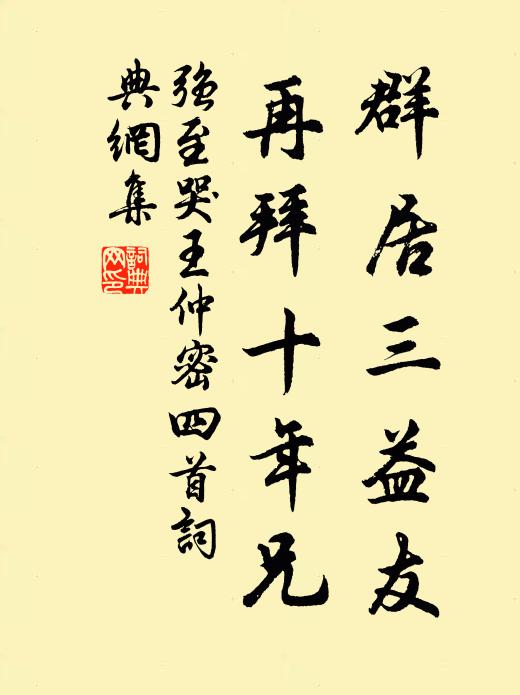 群居三益友
再拜十年兄
強至哭王仲密四首詞
典網集
詞典
网印